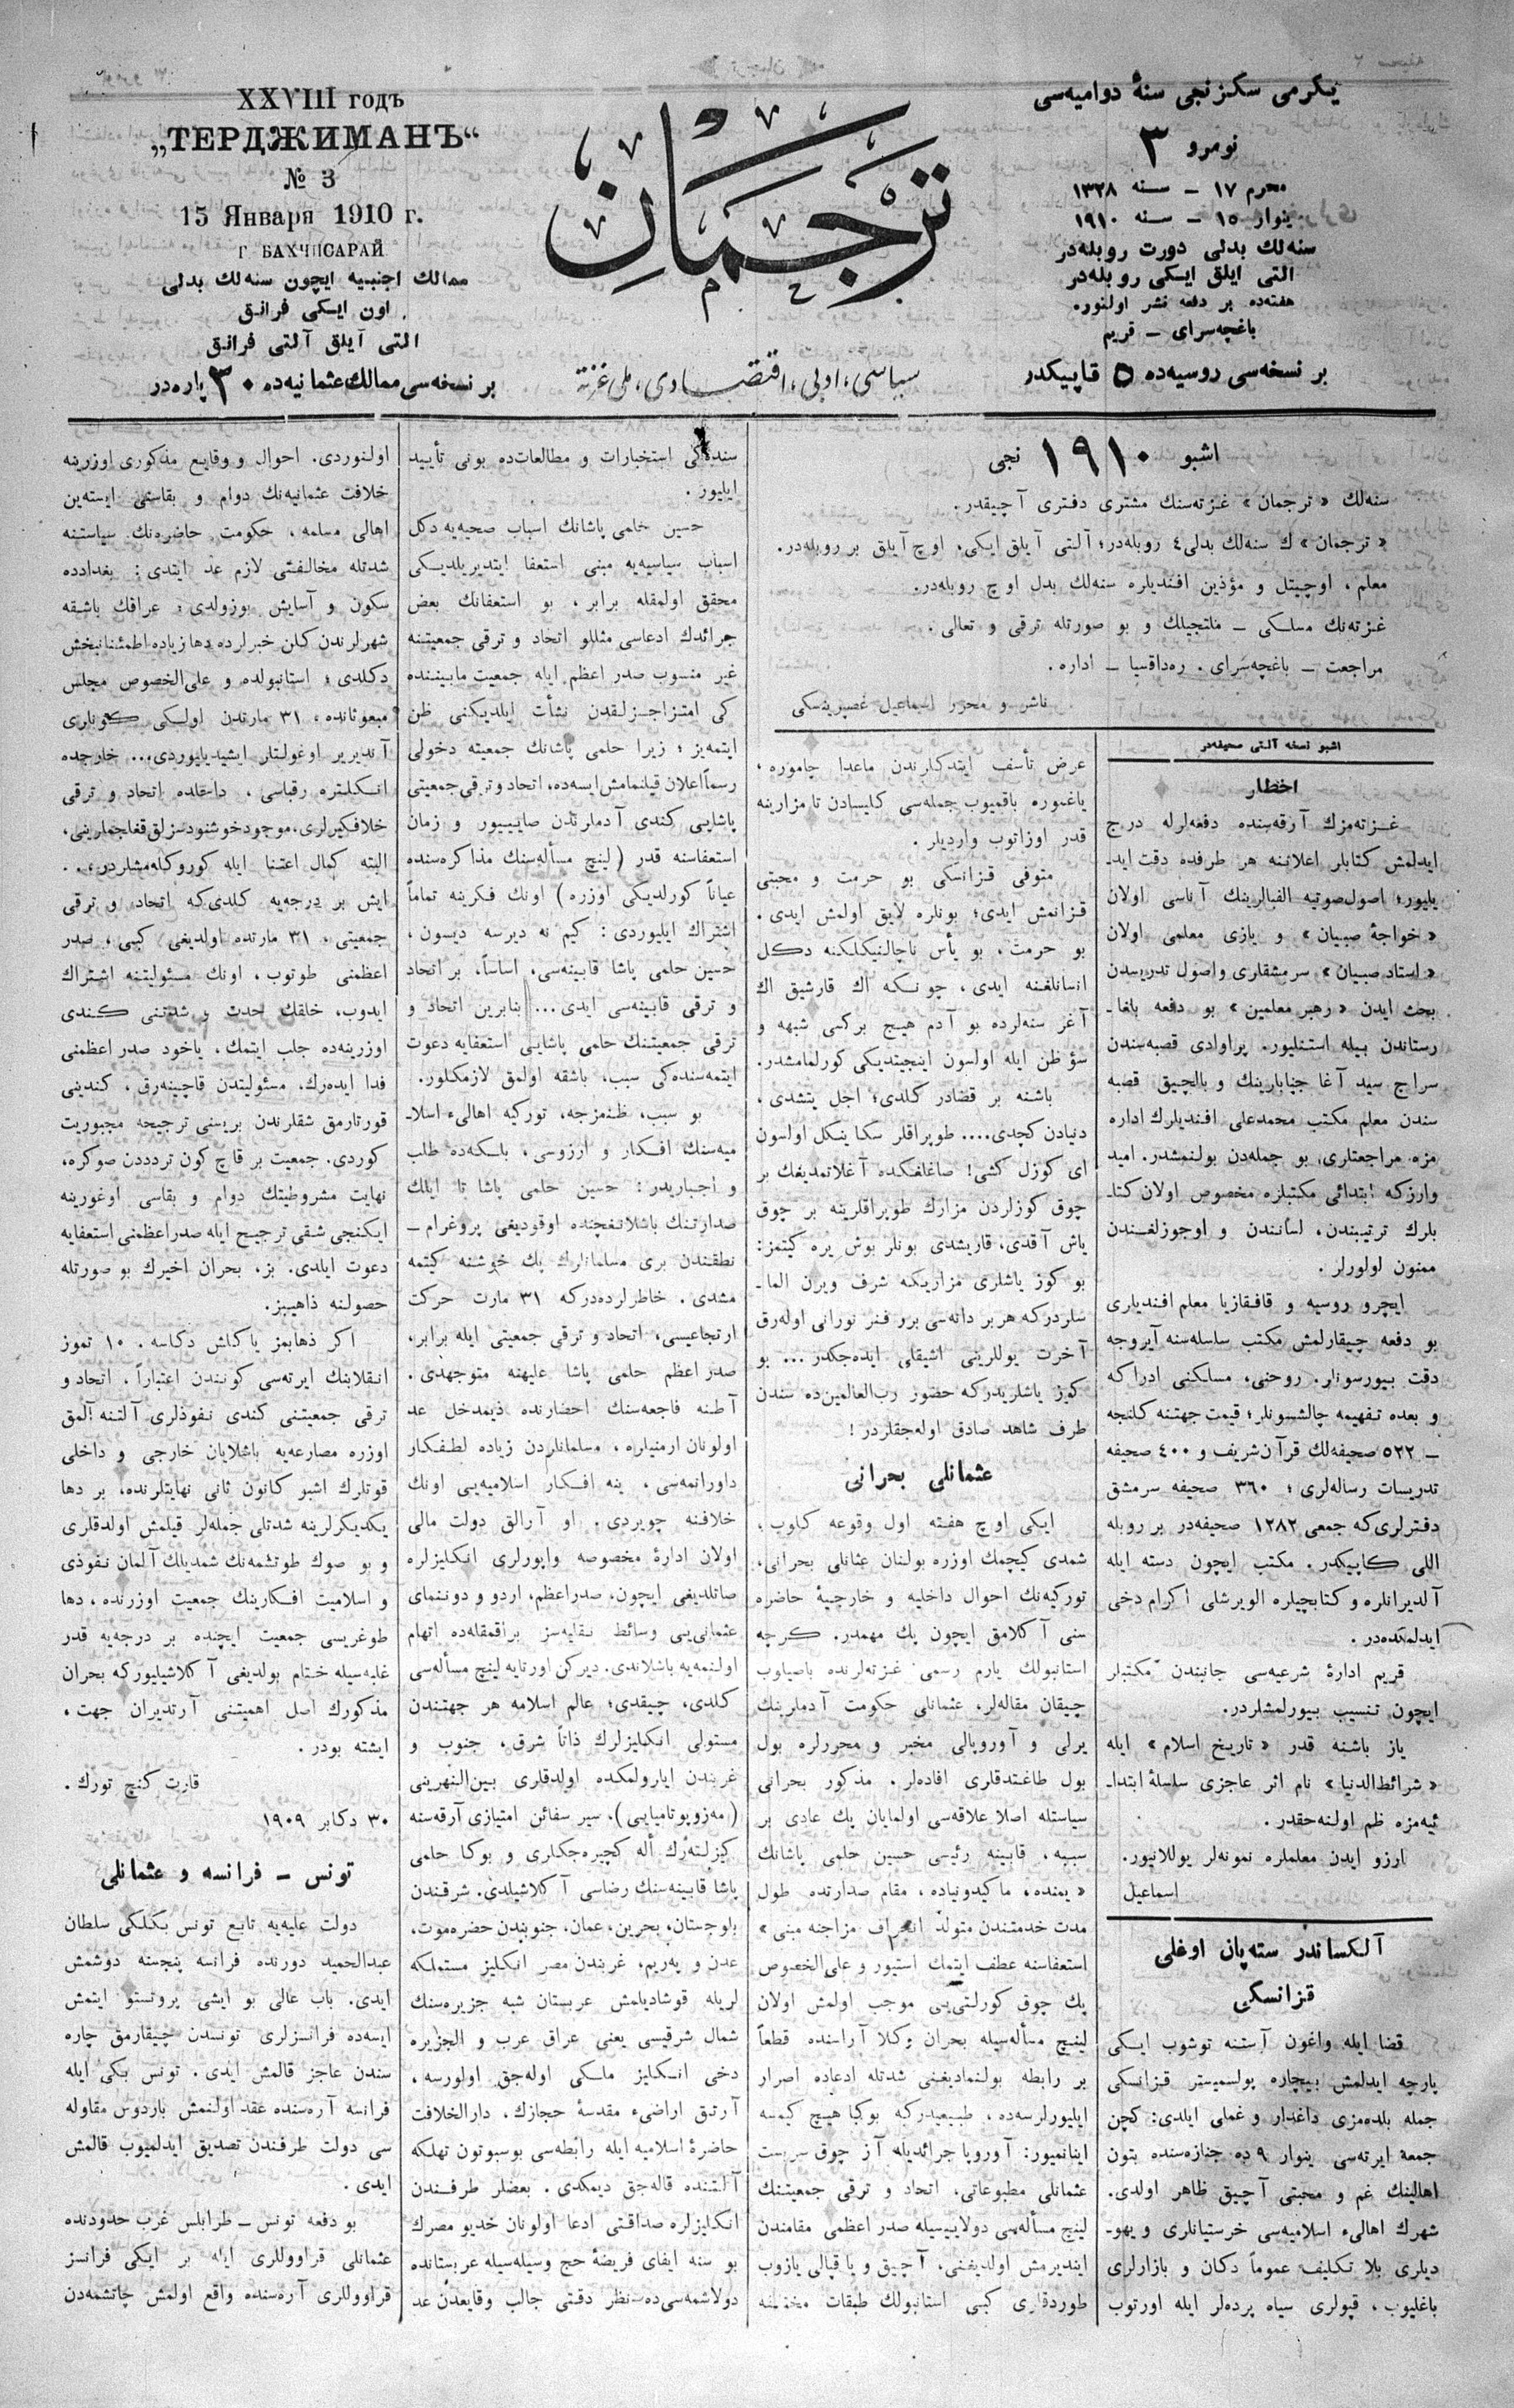 XXVIII годъ
„ТЕРДЖИМАНЪ“
№ 3
15 Января 1910 г.
г БАХЧИСАРАЙ
ممالك اجنبیه ایچون سنه‌لك بدلی
اون ایكی فرانق
التی آیلق آلتی فرانق
بر نسخه‌سی ممالك عثمانیه‌ده ۳۰ پاره‌در
ترجمان
سیاسی، ادبی، اقتصادی، ملی غزته
یكرمی سكزنجی سنۀ دوامیه‌سی
نومرو ۳
محرم ۱۷ – سنه ۱۳۲۸
ینوار ۱۵ – سنه ۱۹۱۰
سنه‌لك بدلی دورت روبله‌در
التی ایلق ایكی روبله‌در
هفته‌ده بر دفعه نشر اولنور.
باغچه‌سرای – قریم
بر نسخه‌سی روسیه‌ده ۵ قاپیكدر
اشبو ۱۹۱۰ نجی
سنه‌لك « ترجمان » غزته‌سنك مشتری دفتری آچیقدر.
« ترجمان » ك سنه‌لك بدلی ٤ روبله‌در؛ آلتی آیلق ایكی، اوچ آیلق بر روبله‌در.
معلم، اوچیتل و مؤذین افندیلره سنه‌لك بدل اوچ روبله‌در.
غزته‌نك مسلكی – ملتجیلك و بو صورتله ترقی و تعالی.
مراجعت – باغچه‌سرای. ره‌داقسیا – اداره.
ناشر و محرر اسماعیل غصپرینسكی
اشبو نسخه آلتی صحیفه‌در
اخطار
غزته‌مزك آرقه‌سنده دفعه‌لرله درج
ایدلمش كتابلر اعلاننه هر طرفده دقت ایدـ
یلیور؛ اصول صوتیه الفبالرینك آناسی اولان
« خواجۀ صبیان » و یازی معلمی اولان
« استاد صبیان » سرمشقلری واصول تدریسدن
بحث ایدن « رهبر معلمین » بو دفعه بلغاـ
رستاندن بیله استنلیور. پراوادی قصبه‌سندن
سراج سید آغا جنابارینك و بالچیق قصبه
سندن معلم مكتب محمدعلی افندیلرك اداره
مزه مراجعتلری بو جمله‌دن بولنمشدر. امید
وارزكه ابتدائی مكتبلزه مخصوص اولان كتاـ
بلرك ترتیبندن، لسانندن و اوجوزلغندن
ممنون اولورلر.
ایچرو روسیه و قافقازیا معلم افندیلری
بو دفعه چیقارلمش مكتب سلسله‌سنه آیروجه
دقت بیورسونلر. روحنی، مسلكنی ادراكه
و بعده تفهیمه چالشسونلر؛ قیمت جهتنه كلنجه
– ۵۲۲ صحیفه‌لك قرآن شریف و ٤٠٠ صحیفه
تدریسات رساله‌لری؛ ۳٦٠ صحیفه سرمشق
دفترلری‌كه جمعی ۱۲۸۲ صحیفه‌در بر روبله
اللی كاپیكدر. مكتب ایچون دسته ایله
آلدیرانلره و كتابچیلره الویرشلی اكرام دخی
ایدلمكده‌در.
قریم ادارۀ شرعیه‌سی جانبندن مكتبلر
ایچون تنسیب بیورلمشلردر.
یاز باشنه قدر « تاریخ اسلام » ایله
« شرائط‌الدنیا » نام اثر عاجزی سلسلۀ ابتداـ
ئیه‌مزه ظم اولنه‌جقدر.
ارزو ایدن معلملره نمونه‌لر یوللانیور.
اسماعیل
آلكساندر سته‌پان اوغلی
قزانسكی
قضا ایله واغون آستنه توشوب ایكی
پارچه ایدلمش بیچاره پولسمیستر قزانسكی
جمله بلده‌مزی داغدار و غملی ایلدی: كچن
جمعه ایرته‌سی ینوار ۹ ده جنازه‌سنده بتون
اهالینك غم و محبتی آچیق ظاهر اولدی.
شهرك اهالیء اسلامیه‌سی خرستیانلری و یهوـ
دیلری بلا تكلیف عموماً دكان و بازارلری
باغلیوب، قپولری سیاه پرده‌لر ایله اورتوب
عرض تأسف ایتدكلرندن ماعدا جاموره،
یاغموره باقمیوب جمله‌سی كلیسادن تا مزارینه
قدر اوزاتوب واردیلر.
متوفی قزانسكی بو حرمت و محبتی
قزانمش ایدی؛ بونلره لایق اولمش ایدی.
بو حرمت، بو یأس ناچالنیكلكنه دكل
انسانلغنه ایدی، چونكه اك قارشیق اك
آغر سنه‌لرده بو آدم هیچ بركسی شبهه و
سؤ ظن ایله اولسون اینجیتدیكی كورلمامشدر.
باشنه بر قضادر كلدی؛ اجل یتشدی،
دنیادن كچدی.... طوپراقلر سكا ینكل اولسون
ای كوزل كشی! صاغلغكده آغلاتمدیغك بر
چوق كوزلردن مزارك طوپراقلرینه بر چوق
یاش آقدی، قاریشدی بونلر بوش یره كیتمز:
بو كوز یاشلری مزاریكه شرف ویرن الماـ
سلردركه هربر دانه‌سی برو فنر نورانی اوله‌رق
آخرت یوللرینی اشیقلی ایده‌جكدر... بو
كوز یاشلریدركه حضور رب‌العالمین‌ده سندن
طرف شاهد صادق اوله‌جقلردر!
عثمانلی بحرانی
ایكی اوچ هفته اول وقوعه كلوب،
شمدی كیچمك اوزره بولنان عثمانلی بحرانی،
توركیه‌نك احوال داخلیه و خارجیۀ حاضره
سنی آكلامق ایچون پك مهمدر. كرچه
استانبولك یارم رسمی غزته‌لرنده باصیلوب
چیقان مقاله‌لر، عثمانلی حكومت آدملرینك
یرلی و آوروپالی مخبر و محررلره بول
بول طاغتدقلری افاده‌لر. مذكور بحرانی
سیاستله اصلا علاقه‌سی اولمایان پك عادی بر
سببه، قابینه رئیسی حسین حلمی پاشانك
« یمنده، ماكیدونیاده، مقام صدارتده طول
مدت خدمتندن متولد انحراف مزاجنه مبنی »
استعفاسنه عطف ایتمك استیور و علی‌الخصوص
پك چوق كورلتی‌یی موجب اولمش اولان
لینچ مسأله‌سیله بحران وكلا آراسنده قطعاً
بر رابطه بولنمادیغنی شدتله ادعاده اصرار
ایلیورلرسه‌ده، طبیعیدركه بوكا هیچ كیمسه
اینانمیور: آوروپا جرائدیله آز چوق سربست
عثمانلی مطبوعاتی، اتحاد و ترقی جمعیتنك
لینچ مسأله‌سی دولاییسیله صدر اعظمی مقامندن
ایندیرمش اولدیغنی، آچیق و یا قپالی یازوب
طوردقلری كبی استانبولك طبقات مختلفه
سنده‌كی استخبارات و مطالعات‌ده بونی تأیید
ایلیور.
حسین حلمی پاشانك اسباب صحیه‌یه دكل
اسباب سیاسیه‌یه مبنی استعفا ایتدیریلدیكی
محقق اولمقله برابر، بو استعفانك بعض
جرائدك ادعاسی مثللو اتحاد و ترقی جمعیتنه
غیر منسوب صدر اعظم ایله جمعیت مابیننده
كی امتزاجزلقدن نشأت ایلدیكنی ظن
ایتمه‌یز؛ زیرا حلمی پاشانك جمعیته دخولی
رسماً اعلان قیلنمامش ایسه‌ده، اتحاد و ترقی جمعیتی
پاشایی كندی آدملرندن صاییور و زمان
استعفاسنه قدر (لینچ مسأله‌سنك مذاكره‌سنده
عیاناً كورلدیكی اوزره) اونك فكرینه تماماً
اشتراك ایلیوردی: كیم نه دیرسه دیسون،
حسین حلمی پاشا قابینه‌سی، اساساً، بر اتحاد
و ترقی قابینه‌سی ایدی... بنابرین اتحاد و
ترقی جمعیتنك حلمی پاشایی استعفایه دعوت
ایتمه‌سنده‌كی سبب، باشقه اولمق لازمكلور.
بو سبب، ظنمزجه، توركیه اهالیء اسلاـ
میه‌سنك افكار و ارزوسی، بلكه‌ده طلب
و اجباریدر: حسین حلمی پاشا تا ایلك
صدارتنك باشلانغچنده اوقودیغی پروغرام –
نطقندن بری مسلمانلرك پك خوشنه كیتمه
مشدی. خاطرلرده‌دركه ۳۱ مارت حركت
ارتجاعیسی، اتحاد و ترقی جمعیتی ایله برابر،
صدر اعظم حلمی پاشا علیهنه متوجهدی.
آطنه فاجعه‌سنك احضارنده ذیمدخل عد
اولونان ارمنیلره، مسلمانلردن زیاده لطفكار
داورانمه‌سی، ینه افكار اسلامیه‌یی اونك
خلافنه چویردی. او آرالق دولت مالی
اولان ادارۀ مخصوصه واپورلری انكلیزلره
صاتلدیغی ایچون، صدراعظم، اردو و دوننمای
عثمانی‌یی وسائط نقلیه‌سز براقمقله‌ده اتهام
اولنمه‌یه باشلاندی. دیركن اورتایه لینچ مسأله‌سی
كلدی، چیقدی؛ عالم اسلامه هر جهتندن
مستولی انكلیزلرك ذاتاً شرق، جنوب و
غربندن ایارولمكده اولدقلری بین‌النهرینی
(مه‌زوپوتامیایی)، سیر سفائن امتیازی آرقه‌سنه
كیزلنه‌رك أله كچیره‌جكلری و بوكا حلمی
پاشا قابینه‌سنك رضاسی آكلاشیلدی. شرقندن
بلوجستان، بحرین، عمان، جنوبندن حضره‌موت،
عدن و په‌ریم، غربندن مصر انكلیز مستملكه
لریله قوشادیلمش عربستان شبه جزیره‌سنك
شمال شرقیسی یعنی عراق عرب و الجزیره
دخی انكلیز ملكی اوله‌جق اولورسه،
آرتق اراضیء مقدسۀ حجازك، دارالخلافت
حاضرۀ اسلامیه ایله رابطه‌سی بوسبوتون تهلكه
آلتنده قاله‌جق دیمكدی. بعضلر طرفندن
انكلیزلره صداقتی ادعا اولونان خدیو مصرك
بو سنه ایفای فریضۀ حج وسیله‌سیله عربستانده
دولاشمه‌سی‌ده نظر دقتی جالب وقایعدن عد
اولنوردی. احوال و وقایع مذكوری اوزرینه
خلافت عثمانیه‌نك دوام و بقاسنی ایسته‌ین
اهالی مسلمه، حكومت حاضره‌نك سیاستنه
شدتله مخالفتی لازم عد ایتدی: بغدادده
سكون و آسایش بوزولدی؛ عراقك باشقه
شهرلرندن كلن خبرلرده دها زیاده اطمئنانبخش
دكلدی؛ استانبولده و علی‌الخصوص مجلس
مبعوثانده، ۳۱ مارتدن اولكی كونلری
آندیریر اوغولتلر ایشیدیلیوردی... خارجده
انكلتره رقباسی، داخلده اتحاد و ترقی
خلافكیرلری، موجود خوشنودسزلق قغلجملرینی،
البته كمال اعتنا ایله كوروكله‌مشلردر،..
ایش بر درجه‌یه كلدی‌كه اتحاد و ترقی
جمعیتی، ۳۱ مارتده اولدیغی كبی، صدر
اعظمنی طوتوب، اونك مسئولیتنه اشتراك
ایدوب، خلقك حدت و شدتنی كندی
اوزرینه‌ده جلب ایتمك، یاخود صدر اعظمنی
فدا ایده‌رك، مسئولیتدن قاچینه‌رق، كندینی
قورتارمق شقلرندن بریسنی ترجیحه مجبوریت
كوردی. جمعیت بر قاچ كون ترددن صوكره،
نهایت مشروطیتك دوام و بقاسی اوغورینه
ایكنجی شقی ترجیح ایله صدراعظمنی استعفایه
دعوت ایلدی. بز، بحران اخیرك بو صورتله
حصولنه ذاهیبز.
اكر ذهابمز یاكلش دكلسه، ۱۰ تموز
انقلابنك ایرته‌سی كونندن اعتباراً، اتحاد و
ترقی جمعیتنی كندی نفوذلری آلتنه آلمق
اوزره مصارعه‌یه باشلایان خارجی و داخلی
قوتلرك اشبو كانون ثانی نهایتلرنده، بر دها
یكدیكرلرینه شدتلی جمله‌لر قیلمش اولدقلری
و بو صوك طوتشمه‌نك شمدیلك آلمان نفوذی
و اسلامیت افكارینك جمعیت اوزرنده، دها
طوغریسی جمعیت ایچنده بر درجه‌یه قدر
غلبه‌سیله ختام بولدیغی آكلاشیلیوركه بحران
مذكورك اصل اهمیتنی آرتدیران جهت،
ایشته بودر.
قارت كنچ تورك.
۳۰ دكابر ۱۹۰۹
تونس – فرانسه و عثمانلی
دولت علیه‌یه تابع تونس بكلكی سلطان
عبدالحمید دورنده فرانسه پنجسنه دوشمش
ایدی. باب عالی بو ایشی پروتستو ایتمش
ایسه‌ده فرانسزلری تونسدن چیقارمق چاره
سندن عاجز قالمش ایدی. تونس بكی ایله
فرانسه آره‌سنده عقد اولنمش باردوس مقاوله
سی دولت طرفندن تصدیق ایدلمیوب قالمش
ایدی.
بو دفعه تونس – طرابلس غرب حدودنده
عثمانلی قراوللری ایله بر ایكی فرانسز
قراوللری آره‌سنده واقع اولمش چاتشمه‌دن